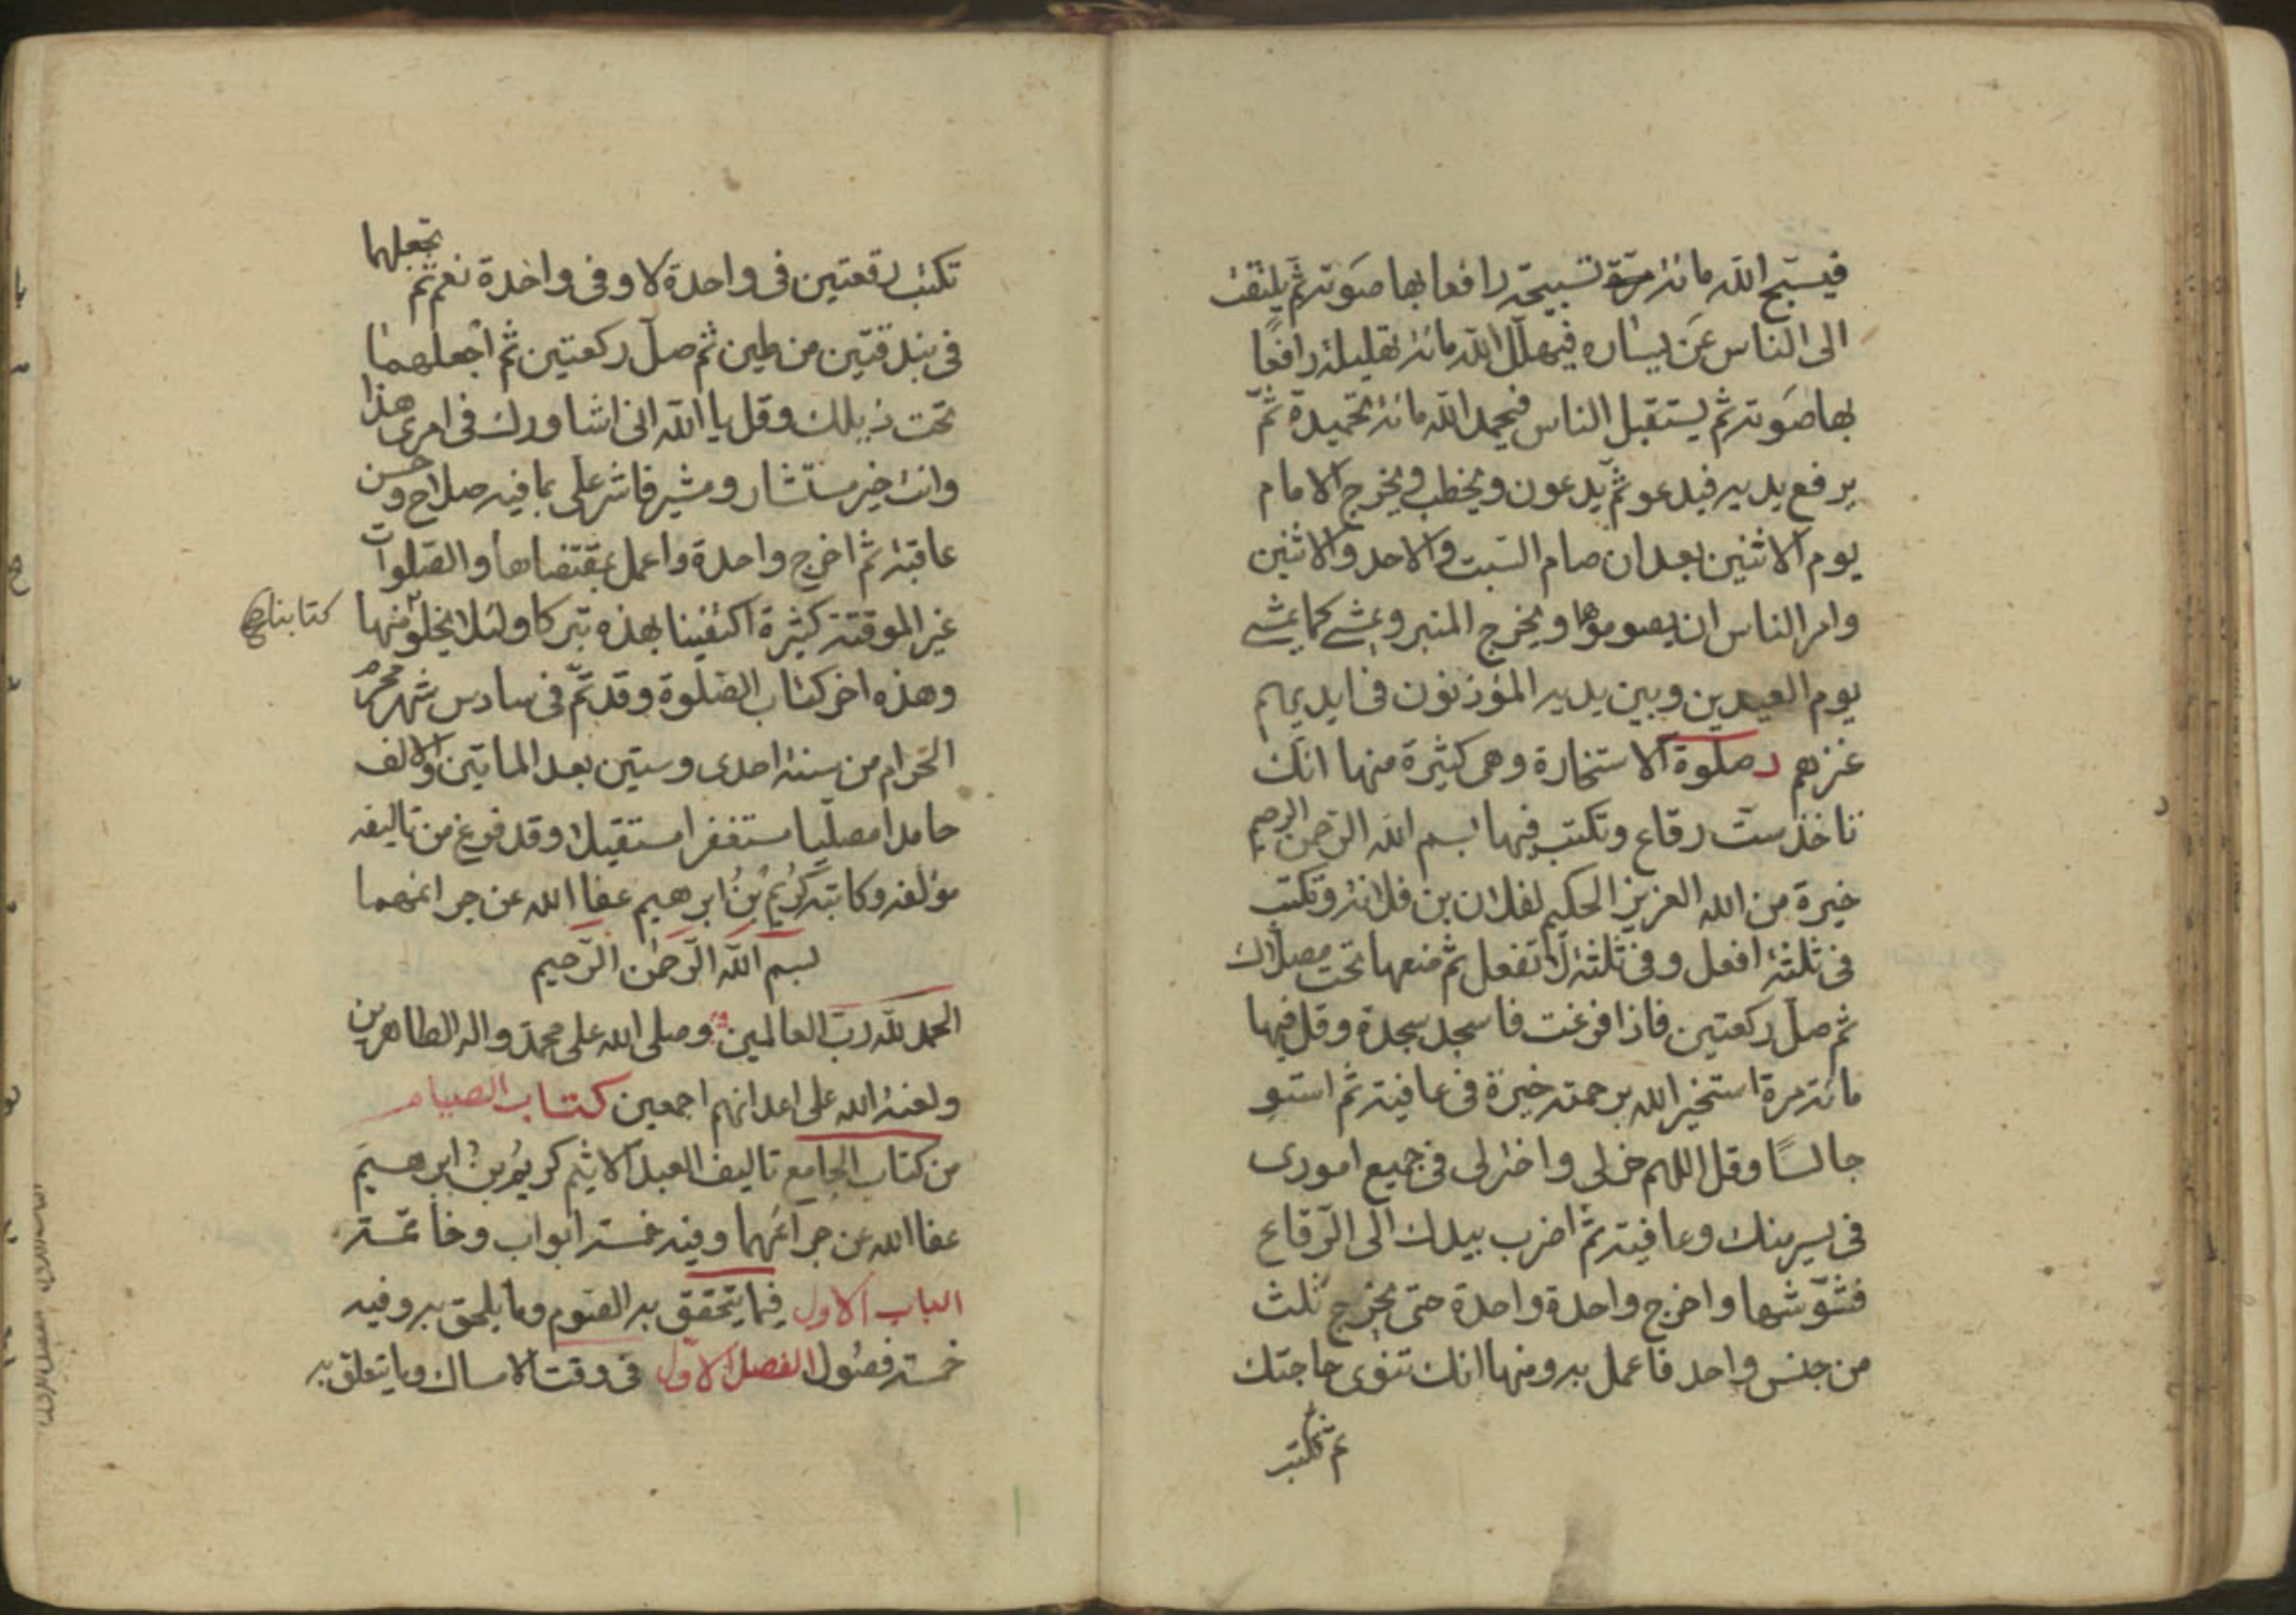 فيسبح الله مائة مرة تسبيحة رافعا بها صوته ثم يلتفت
الى الناس عن يساره فيهلل الله مائة تهليلة رافعا
بها صوته ثم يستقبل الناس فيحمد الله مائة تحميدة ثم
يرفع يديه فيدعو ثم يدعون ويخطب ويخرج الامام
يوم الاثنين بعد ان صام السبت والاحد والاثنين
وامر الناس ان يصوموها ويخرج المنبر ويمشى كما يمشى
يوم العيدين وبين يديه المؤذنون فى ايديهم
عنزهم د صلوة الاستخارة وهى كثيرة منها انك
تاخذ ست رقاع وتكتب فيها بسم الله الرحمن الرحيم
خيرة من الله العزيز الحكيم لفلان بن فلانة وتكتب
فى ثلثة افعل وفى ثلثة لا تفعل ثم ضعها تحت مصلاك
ثم صل ركعتين فاذا فرغت فاسجد سجدة وقل فيها
مائة مرة استخير الله برحمته خيرة فى عافية ثم استو
جالسًا وقل اللهم خر لى واختر لى فى جميع امورى
فى يسر منك وعافية ثم اضرب بيدك الى الرقاع
فشوشها واخرج واحدة واحدة حتى يخرج ثلث
من جنس واحد فاعمل به ومنها انك تنوى حاجتك
ثم تكتب
تكتب رقعتين فى واحدة لا وفى واحدة نعم ثم تجعلهما
فى بندقتين من طين ثم صل ركعتين ثم اجعلهما
تحت ذيلك وقل يا الله انى اشاورك فى امرى هذا
وانت خير مستشار ومشير فاشر على بما فيه صلاح وحسن
عاقبة ثم اخرج واحدة واعمل بمقتضاها والصلوات
غير الموقتة كثيرة اكتفينا بهذه تبركا ولئلا يخلو منها
كتابنا صح
وهذه اخر كتاب الصلوة وقد تم فى سادس شهر محرم
الحرام من سنة احدى وستين بعد الماتين والالف
حامدا مصليا مستغفرا مستقيلا وقد فرغ من تاليفه
مؤلفه وكاتبه كريم بن ابرهيم عفا الله عن جرائمهما
بسم الله الرحمن الرحيم
الحمد لله رب العالمين وصلى الله على محمد واله الطاهرين
ولعنة الله على اعدائهم اجمعين كتاب الصيام
من كتاب الجامع تاليف العبد الاثيم كريم بن ابرهيم
عفا الله عن جرائمهما وفيه خمسة ابواب وخاتمة
الباب الاول فيما يتحقق به الصوم وما يلحق به وفيه
خمسة فصول الفصل الاول فى وقت الامساك وما يتعلق به